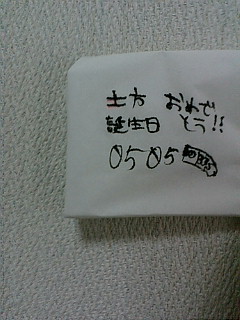 土方 おめで
誕生日 とう!!
0505